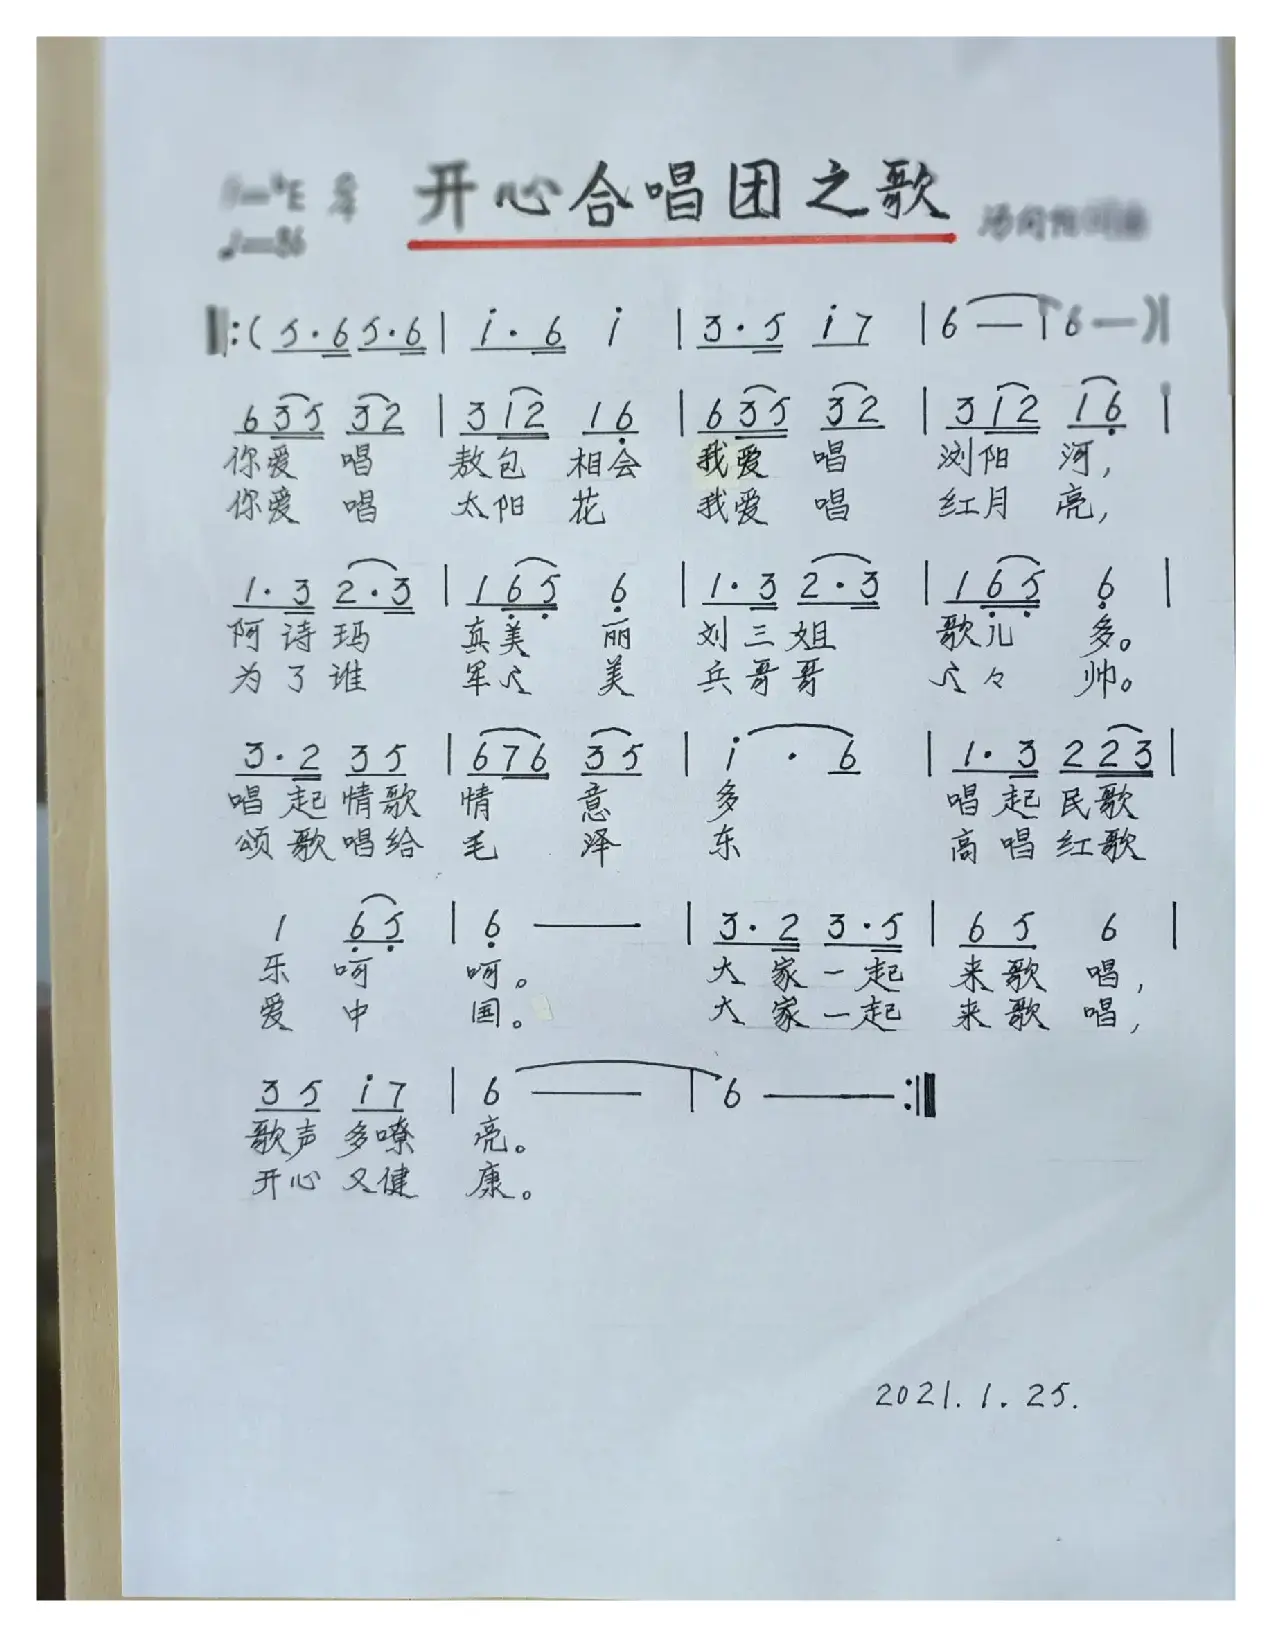 开心合唱团之歌
♩=86
‖:(5·65·6| i·6 i |3·5 i7 |6 — |6 —)|
635 32 |312 16 |635 32 |312 16 |
你爱 唱 敖包 相会 我爱 唱 浏阳 河,
你爱 唱 太阳 花 我爱 唱 红月 亮,
1·3 2·3 |165 6 |1·3 2·3 |165 6 |
阿诗玛 真美 丽 刘三姐 歌儿 多。
为了谁 军 美 兵哥哥 々 帅。
3·2 35 |676 35 | i · 6 |1·3 223|
唱起情歌 情 意 多 唱起民歌
颂歌唱给 毛 泽 东 高唱红歌
1 65 |6 — |3·2 3·5 |65 6 |
乐 呵 呵。 大家一起 来歌 唱,
爱 中 国。 大家一起 来歌 唱,
35 i7 |6 — |6 — :‖
歌声 多嘹 亮。
开心 又健 康。
2021.1.25.